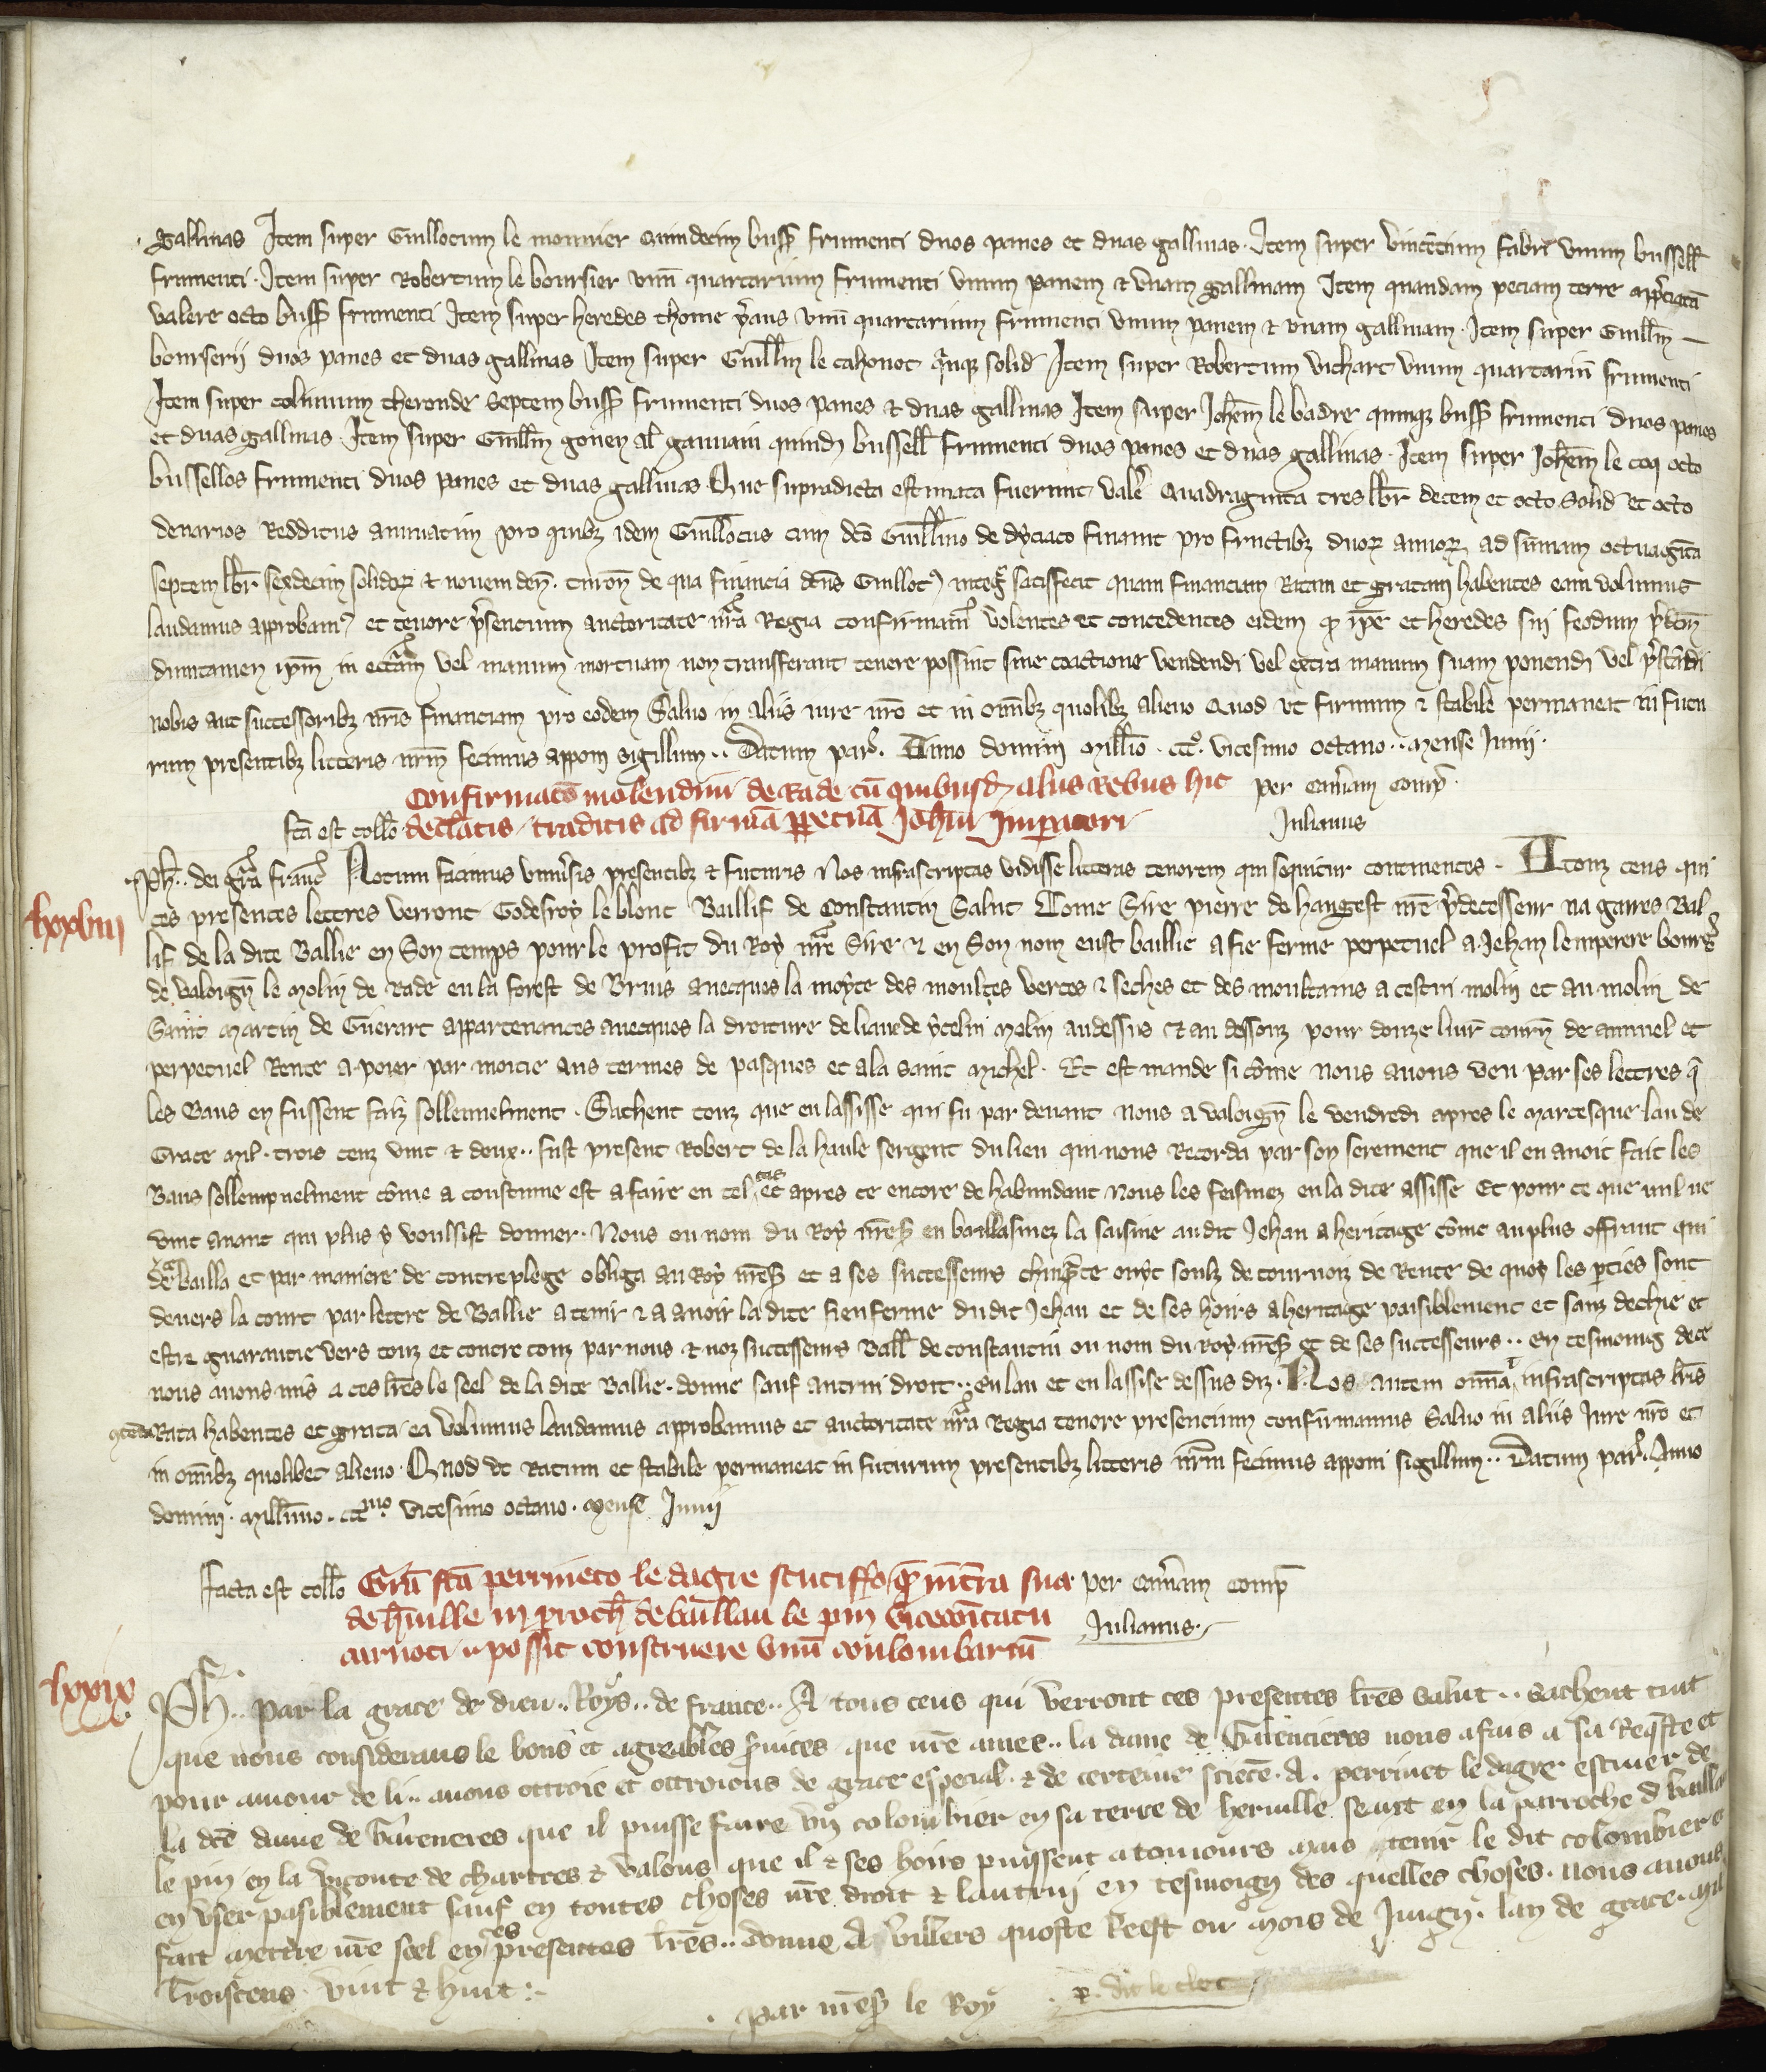 gallinas Item super Guillotum le monnier Quindecim buss frumenti duos panes et duas gallinas. Item super vincentium fabri unum bussell
frumenti. Item super Robertum le boursier unu quartarium frumenti unum panem et unam gallinam Item quandam peciam terre appciata
valere octo buss frumenti Item super heredes thome unu quartarium frumenti unum panem et unam gallinam. Item super Guillm
bourserii duos panes et duas gallinas Item super Guillm le cahonot quinqz solid Item super Robertum vichart unum quartariu frumenti
Item super colinum theronde septem buss frumenti duos panes et duas gallinas Item super Johem le badre quinqz buss frumenti duos panes
et duas gallinas. Item super Guillm gouen al gauuain quind bussell frumenti duos panes et duas gallinas. Item super Johem le coq octo
bussellos frumenti duos panes et duas gallinas Que supradicta estimata fuerunt valere Quadraginta tres libr decem et octo solid et octo
denarios Redditus annuatim pro quibz idem Guillotus cum dco Guillmo de dyciaco finauit pro fructibz duor annor ad summam octuaginta
septem libr sexdecim solidor et nouem den. turon de qua financia dcus Guillot integre satisfecit quam financiam Ratam et gratam habentes eam volumus
laudamus approbam et tenore psentium auctoritate nra Regia confirmam volentes et concedentes eidem qd ipe et heredes sui feodum pdcm
dumtamen ipm in eccliam vel manum mortuam non transferant tenere possint sine coactione vendendi vel extra manum suam ponendi vel pstandi
nobis aut successoribz nris financiam pro eodem Saluo in aliis iure nro et in omibz quolibz alieno Quod ut firmum et stabile permaneat in futu
rum presentibz litteris nrm fecimus apponi sigillum.. Datum par. Anno domini millio. ccco. vicesimo octauo.. mense Junii.
Confirmaco molendini de Rade cu quibusd aliis Rebus hic per cameram comp.
fca est collo. declatis traditis ad firma ppetua Johni Imperatori Julianus
lxxviii
Ph.. dei gra franc Notum facimus uniusis presentibz et futuris Nos infrascriptas vidisse litteras tenorem qui sequitur continentes. A touz ceus qui
ces presentes lettres verront Godefroy le blont Baillif de Constantin Salut Come Sire pierre de hangest nre pdecesseur na gaires Bal
lif de la dite Ballie en son temps pour le profit du Roy nre Sire et en son nom eust baillie a fie ferme perpetuel a Jehan lemperere bourgs
de valoign le molin de Rade en la forest de Brius auecques la moyte des moultes vertes et seches et des moultains a cestui molin et au molin de
Saint martin de Guerart appartenances auecques la droiture de liaue de ycelui molin audessus et au dessouz pour douze liur tourn de annuel et
perpetuel Rente a poier par moitie aus termes de pasques et a la saint michel. Et est mande si come nous auons veu par ses lettres q
les Bans en fussent faiz sollennelment. Sachent touz que en lassisse qui fu par deuant nous a valoign le vendredi apres le marcesque lan de
Grace mil. trois cenz vint et deux.. fust present Robert de la haule sergent du lieu qui nous Recorda par son serement que il en auoit fait les
Bans sollempnelment come a coustume est a faire en tel cas et apres ce encore de habundant Nous les feismez en la dite assisse Et pour ce que nul ne
vint auant qui plus y voulsist donner. Nous ou nom du Roy nres en baillasmez la saisine audit Jehan a heritage come au plus offrant qui
de bailla et par maniere de contreplege obliga au Roy nres et a ses successeurs chinqte ouyt soulz de tournoiz de Rente de quoy les pties sont
deuers la court par lettre de Ballie a tenir et a auoir la dite fieuferme dudit Jehan et de ses hoirs a heritage paisiblement et sanz dechie et
estre guarantie vers touz et contre touz par nous et noz successeurs Baill de constantin ou nom du Roy nres et de ses successeurs.. En tesmoing de ce
nous auons mis a ces lres le seel de la dite Ballie. donne sauf autrui droit.. En lan et en lassise dessus diz. Nos autem omia infrascriptas lris
contenta Rata habentes et grata ea volumus laudamus approbamus et auctoritate nra Regia tenore presentium confirmamus Saluo in aliis Jure nro et
in omibz quolibet alieno. Quod ut Ratum et stabile permaneat in futurum presentibz litteris nrm fecimus apponi sigillum.. Datum par. Anno
domini. millimo. cccmo. vicesimo octauo. mense Junii
ffacta est collo Gra fca perrineto le dagre scutiffo q in terra sua per cameram comp
de huille in proch de baillau le pin vicecomitatu Julianus.
carnoti possit construere unu coulombariu
lxxix
Ph.. par la grace de dieu.. Roys.. de france.. A tous ceus qui verront ces presentes lres salut.. Sachent tuit
que nous considerans le bons et agreables seruices que nre amee.. la dame de a fais a sa Reqste et
pour amour de li.. auons ottroie et ottroions de grace especial. et de certeine science. A. perrinet le dagre escuier de
la dce dame de que il puisse faire un colombier en sa terre de heruille seant en la parroche de baillau
le pin en la viconte de chartres et valons que il et ses hoirs puissent a touiours mais tenir le dit colombier et
en user pasiblement sauf en toutes choses nre droit et lautrui en tesmoign des quelles choses. nous auons
fait mettre nre seel en ces presentes lres.. donne A villers quoste Reest ou mois de Juign. lan de grace. mil
Troiscens vint et huit:-
. par mess le Roy .